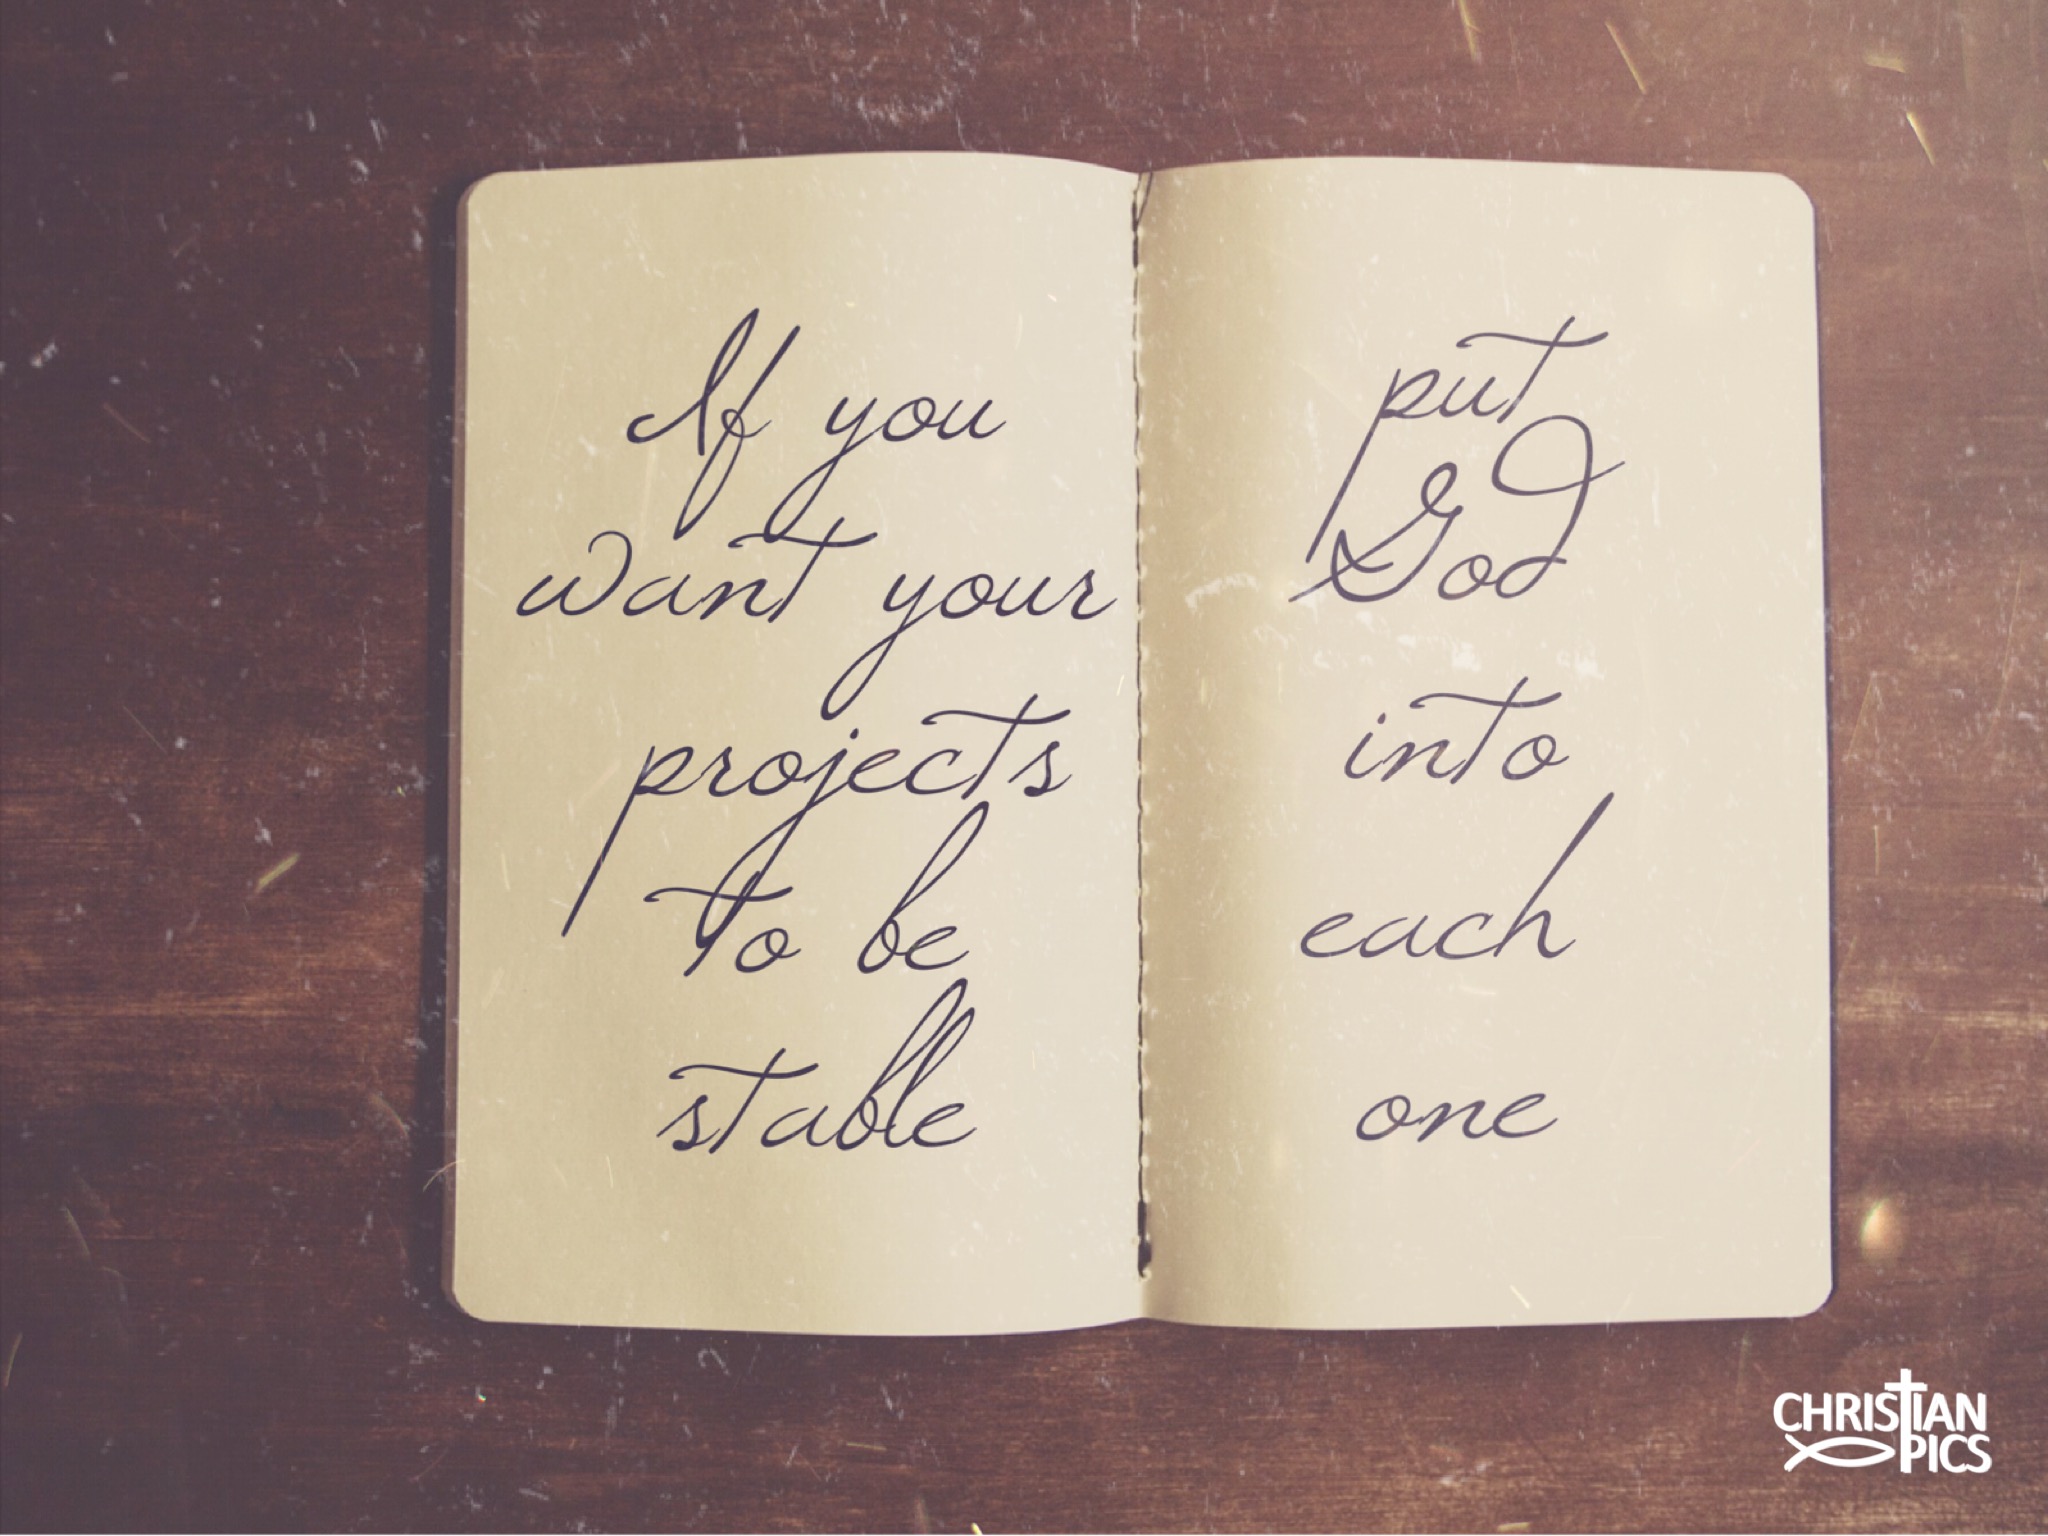 If you
want your
projects
to be
stable
put
God
into
each
one
CHRISTIAN
PICS